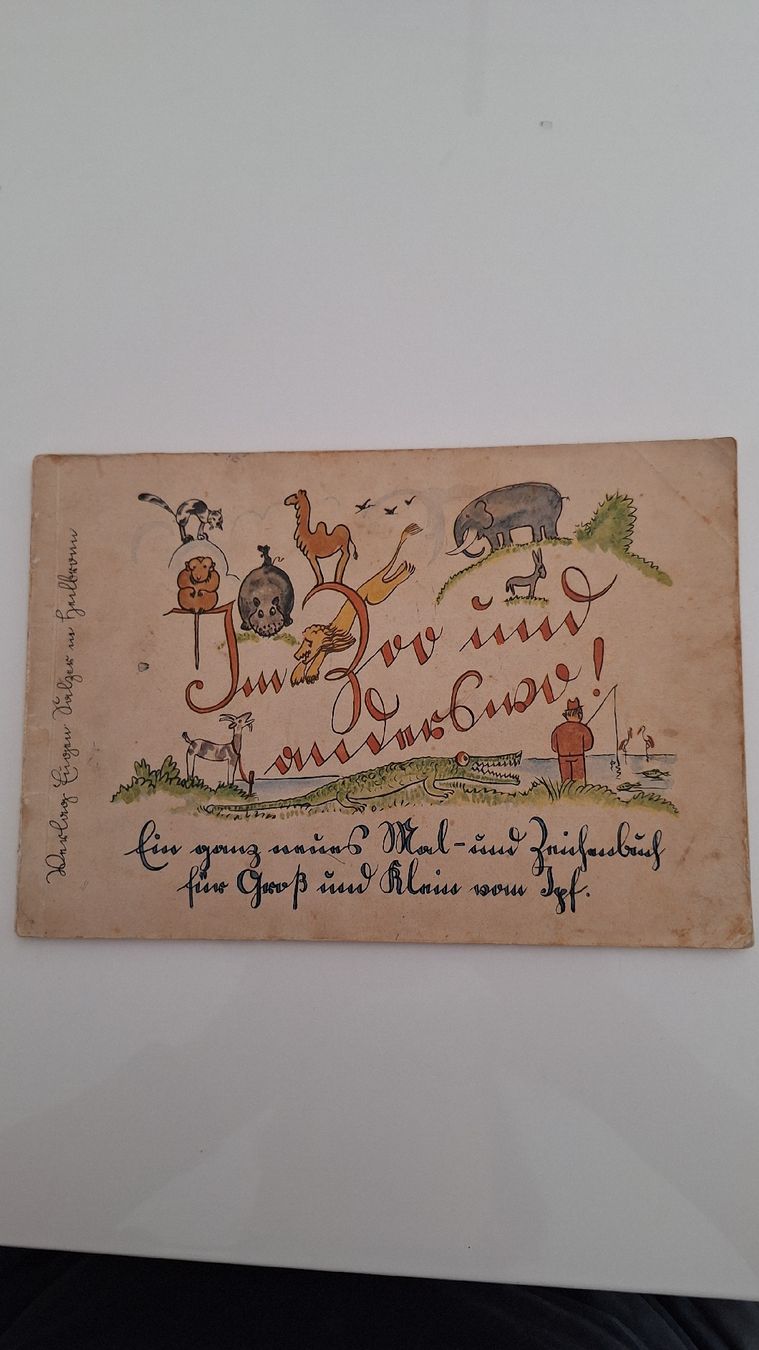 Im Zoo und
anderswo!
Ein ganz neues Mal- und Zeichenbuch
für Groß und Klein vom Ipf.
Verlag Eugen Salzer in Heilbronn